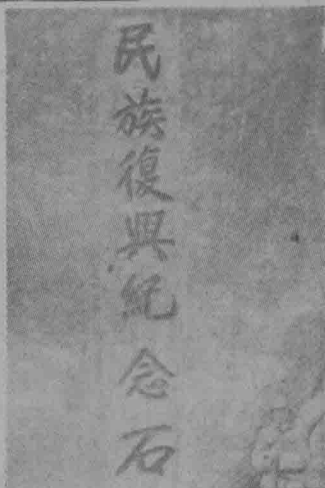 民族復興紀念石